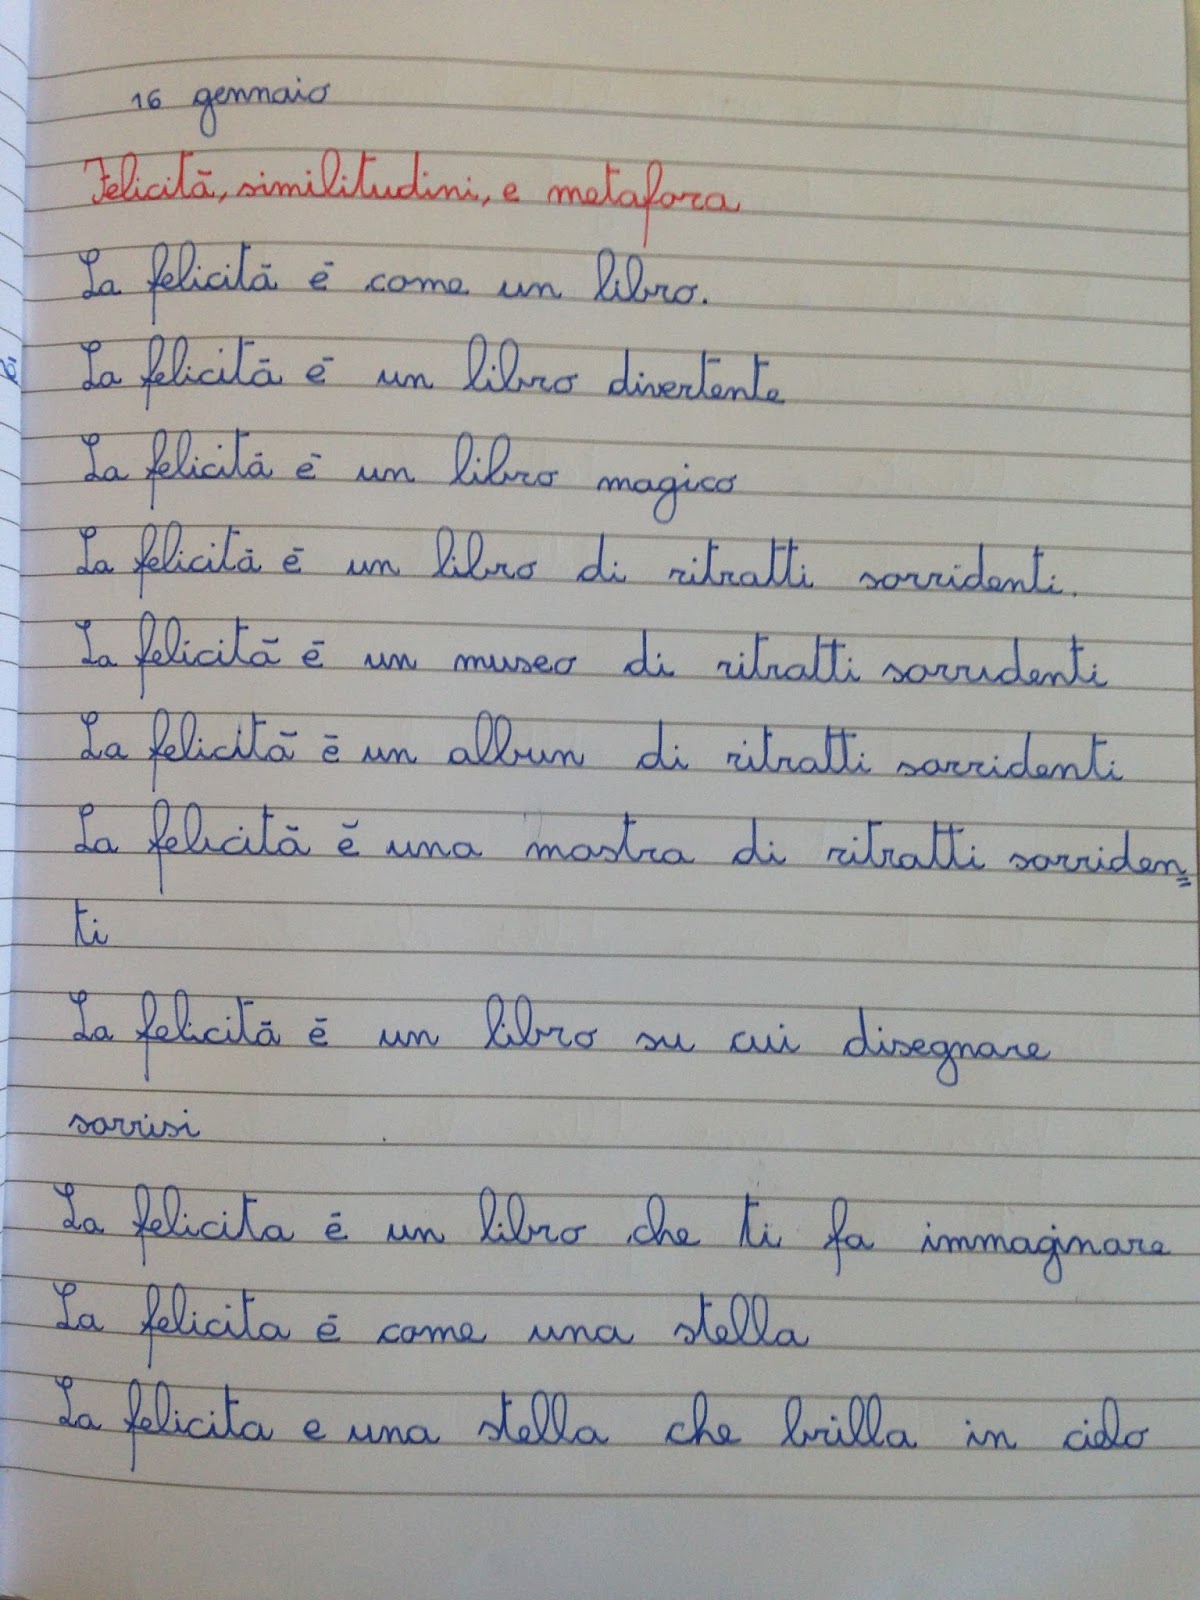 16 gennaio
Felicità, similitudini, e metafora
La felicità è come un libro.
La felicità è un libro divertente
La felicità è un libro magico
La felicità è un libro di ritratti sorridenti.
La felicità è un museo di ritratti sorridenti
La felicità è un albun di ritratti sorridenti
La felicità è una mostra di ritratti sorriden=
ti
La felicità è un libro su cui disegnare
sorrisi
La felicita è un libro che ti fa immaginare
La felicita è come una stella
La felicita e una stella che brilla in cielo